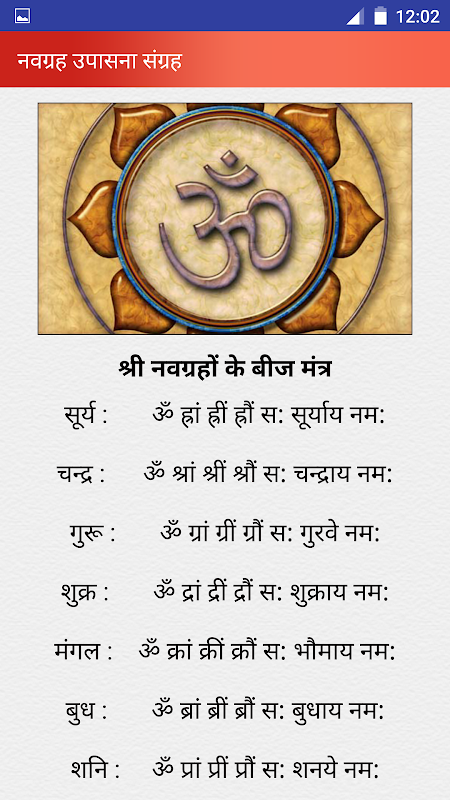 12:02
नवग्रह उपासना संग्रह
ॐ
श्री नवग्रहों के बीज मंत्र
सूर्य : ॐ ह्रां ह्रीं ह्रौं स: सूर्याय नम:
चन्द्र : ॐ श्रां श्रीं श्रौं स: चन्द्राय नम:
गुरू : ॐ ग्रां ग्रीं ग्रौं स: गुरवे नम:
शुक्र : ॐ द्रां द्रीं द्रौं स: शुक्राय नम:
मंगल : ॐ क्रां क्रीं क्रौं स: भौमाय नम:
बुध : ॐ ब्रां ब्रीं ब्रौं स: बुधाय नम:
शनि : ॐ प्रां प्रीं प्रौं स: शनये नम: